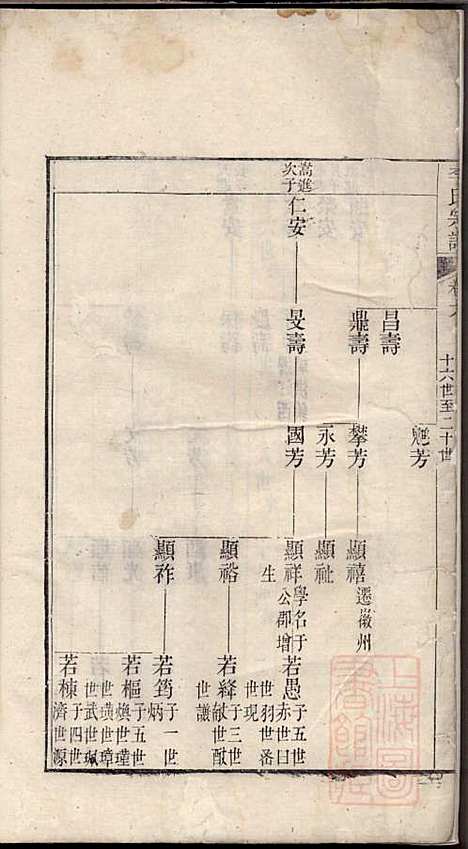 氏宗譜
十六世至二十世
魁芳
昌壽
鼎壽
攀芳
顯禧
遷徽州
永芳
顯祉
嵩進
次子
仁安
旻壽
國芳
顯祥
學名于
公郡增
生
若愚
子五世
赤世曰
世羽世洛
世現
顯裕
若絳
子三世
猷世猷
世讓
顯祚
若筠
子一世
炳
若樞
子五世
煥世瑾
世璜世璋
若棟
子四世
世武世珮
濟世源